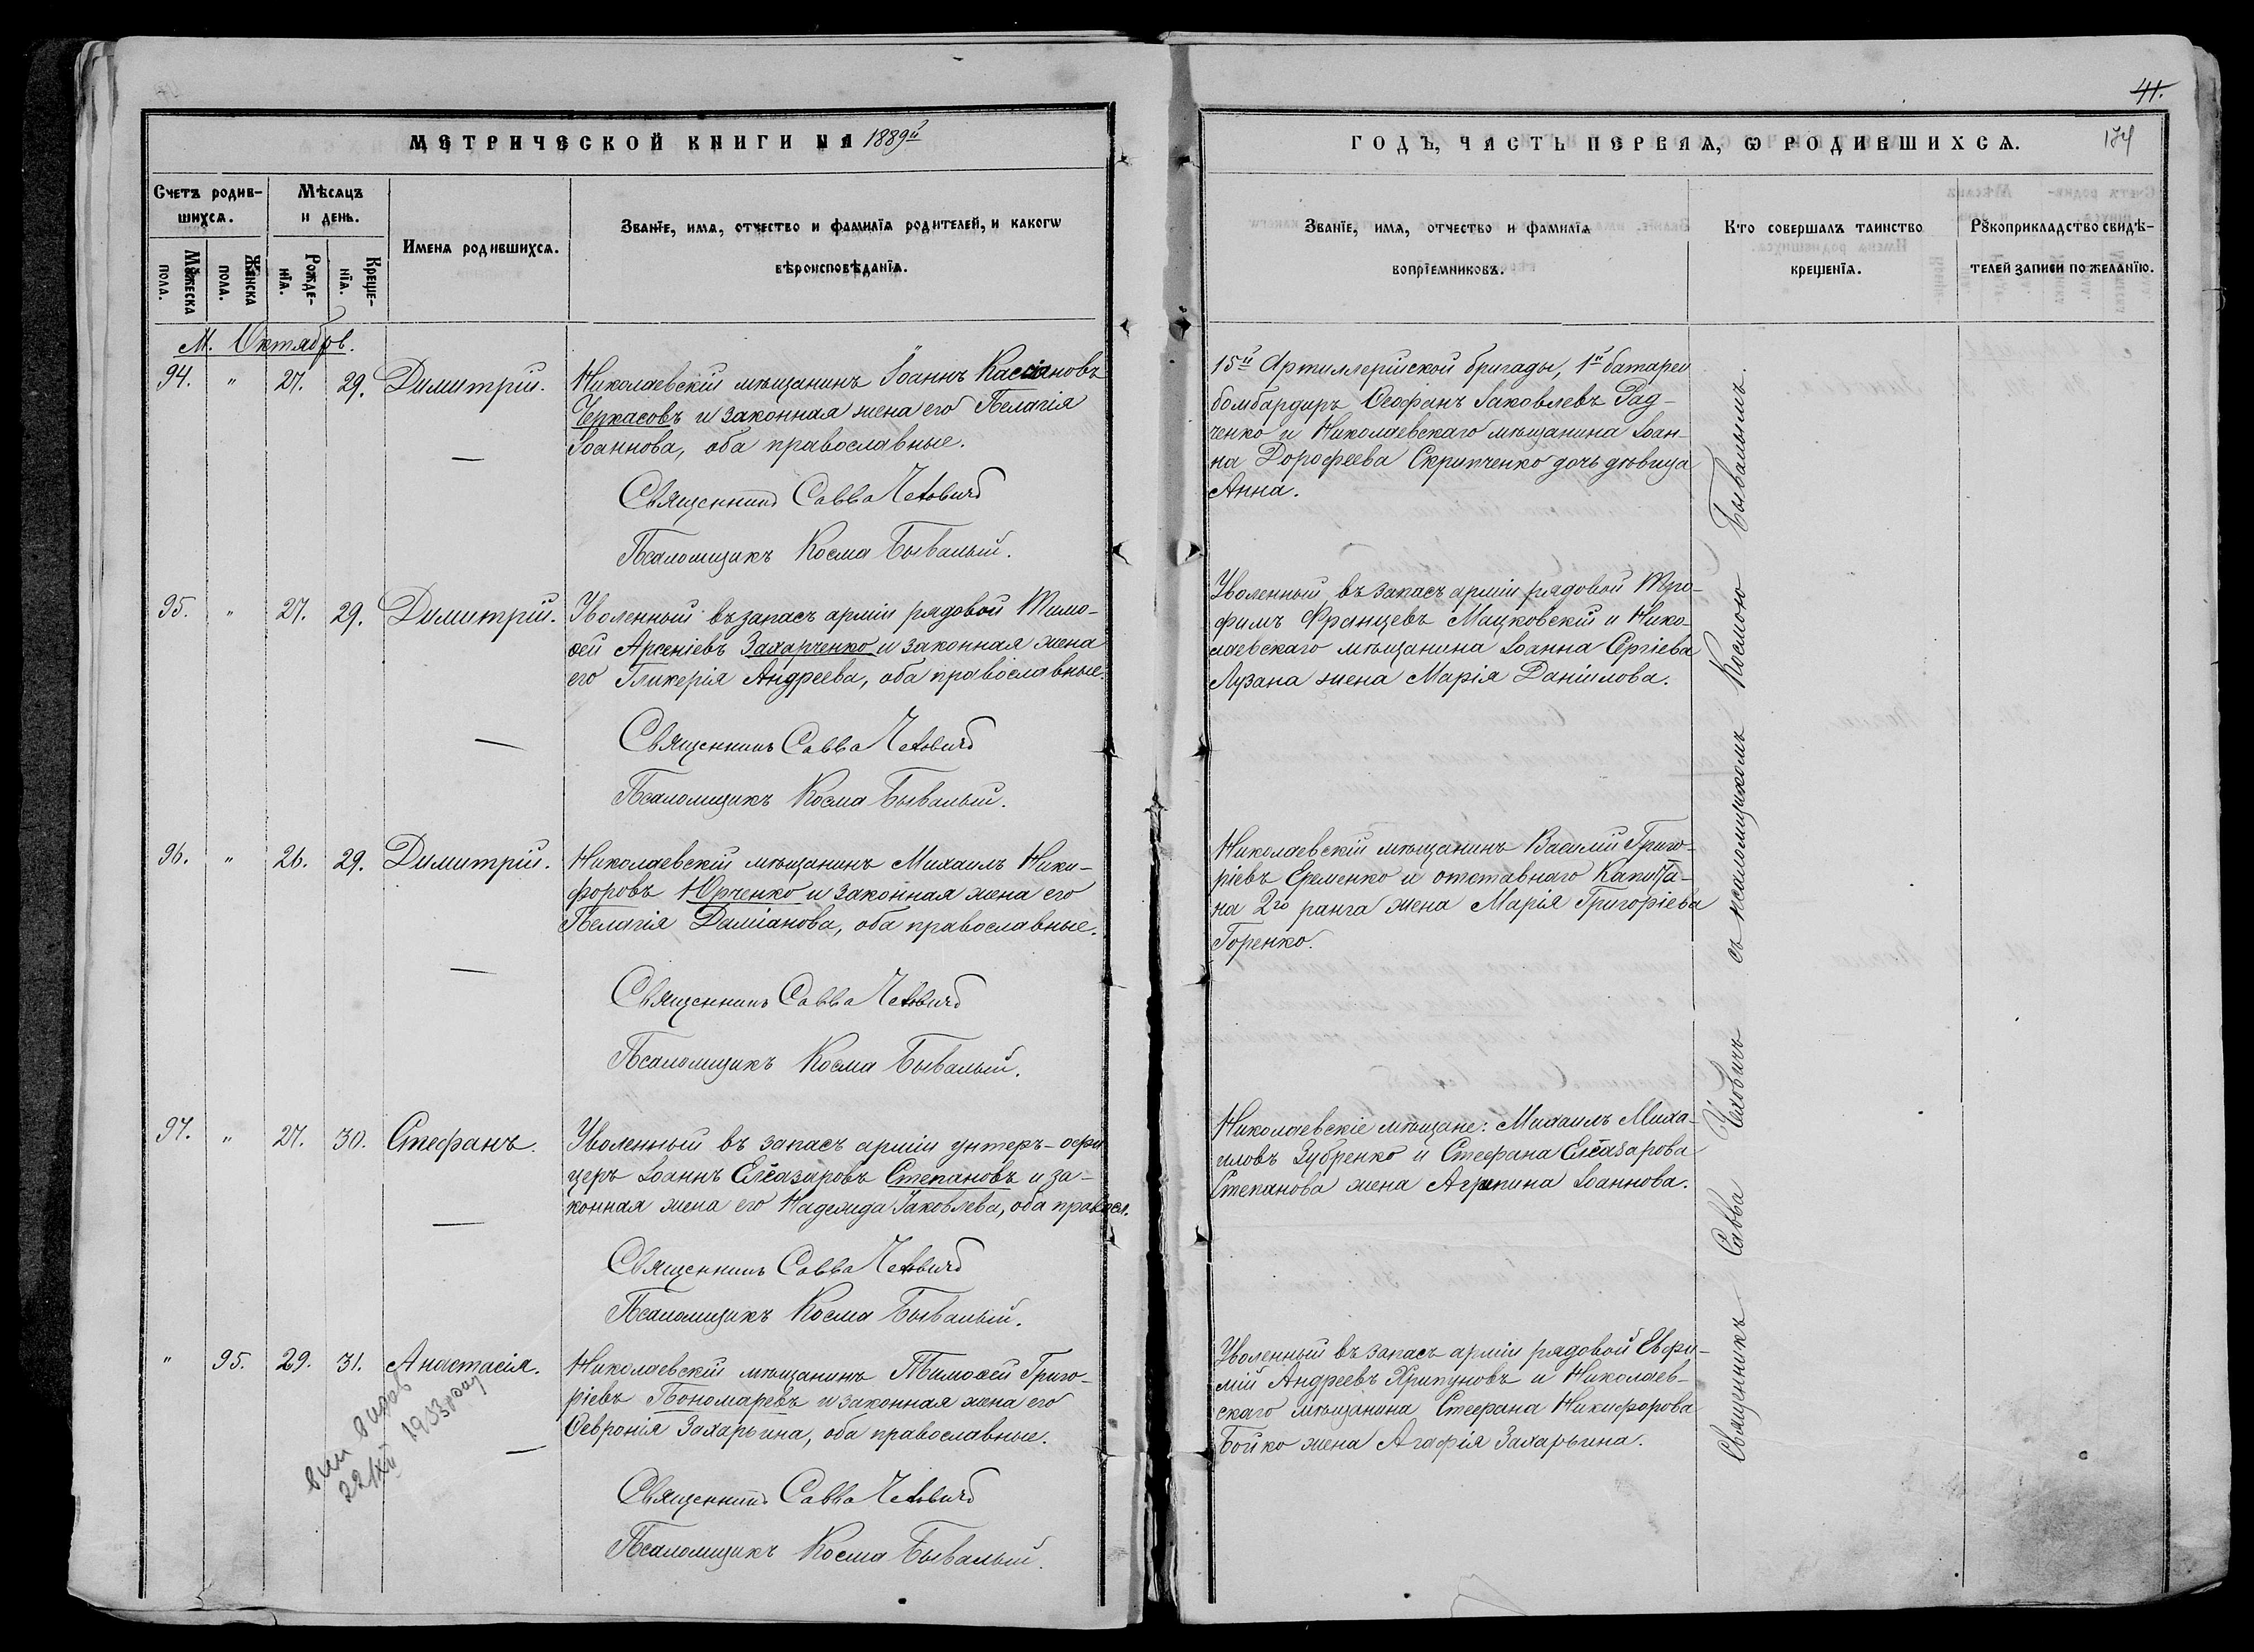 41.
МЕТРИЧЕСКОЙ КНИГИ НА 1889й
ГОДЪ, ЧАСТЬ ПЕРВАѦ, Ѡ РОДИВШИХСѦ.
174
Счетъ родив-
шихсѧ.
Мѣсѧцъ
и день.
Мꙋжеска
пола.
Женска
пола.
Рожде-
нїѧ.
Креще-
нїѧ.
Имена родившихсѧ.
Званїе, имѧ, отчество и фамилїѧ родителей, и какогѡ
вѣроисповѣданїѧ.
Званїе, имѧ, отчество и фамилїѧ
воспрїемниковъ.
Кто совершалъ таинство
крещенїѧ.
Рꙋкоприкладство свидѣ-
телей записи по желанїю.
М. Октябрь.
94. " 27. 29. Димитрій. Николаевскій мѣщанинъ Іоаннъ Кассіановъ
Черкасовъ и законная жена его Пелагія
Іоаннова, оба православные.
Священникъ Савва Чеховичъ
Псаломщикъ Косма Бывалый.
15й Артиллерійской бригады, 1й батареи
бомбардиръ Ѳеофанъ Іаковлевъ Рад-
ченко и Николаевскаго мѣщанина Іоан-
на Дорофеева Скрипченко дочь дѣвица
Анна.
95. " 27. 29. Димитрій. Уволенный въ запасъ арміи рядовой Тимо-
ѳей Арсеніевъ Захарченко и законная жена
его Гликерія Андреева, оба православные.
Священникъ Савва Чеховичъ
Псаломщикъ Косма Бывалый.
Уволенный въ запасъ арміи рядовой Тро-
фимъ Францевъ Мацковскій и Нико-
лаевскаго мѣщанина Іоанна Сергіева
Лузана жена Марія Даніилова.
96. " 26. 29. Димитрій. Николаевскій мѣщанинъ Михаилъ Ники-
форовъ Юрченко и законная жена его
Пелагія Даміанова, оба православные.
Священникъ Савва Чеховичъ
Псаломщикъ Косма Бывалый.
Николаевскій мѣщанинъ Василій Григо-
ріевъ Еременко и отставнаго Капита-
на 2го ранга жена Марія Григоріева
Горенко.
97. " 27. 30. Стефанъ. Уволенный въ запасъ арміи унтеръ-офи
церъ Іоаннъ Елеазаровъ Степановъ и за-
конная жена его Надежда Іаковлева, оба правосл.
Священникъ Савва Чеховичъ
Псаломщикъ Косма Бывалый.
Николаевскіе мѣщане: Михаилъ Миха-
иловъ Зубренко и Стефана Елеазарова
Степанова жена Агрипина Іоаннова.
" 95. 29. 31. Анастасія. Николаевскій мѣщанинъ Тимоѳей Григо-
ріевъ Пономаревъ и законная жена его
Ѳевронія Захарьина, оба православные.
Священникъ Савва Чеховичъ
Псаломщикъ Косма Бывалый.
Уволенный въ запасъ арміи рядовой Евфи-
мій Андреевъ Хрипуновъ и Николаев-
скаго мѣщанина Стефана Никифорова
Бойко жена Агафія Захарьина.
22/XII 1933
Священникъ Савва Чеховичъ съ псаломщикомъ Космою Бывалымъ.